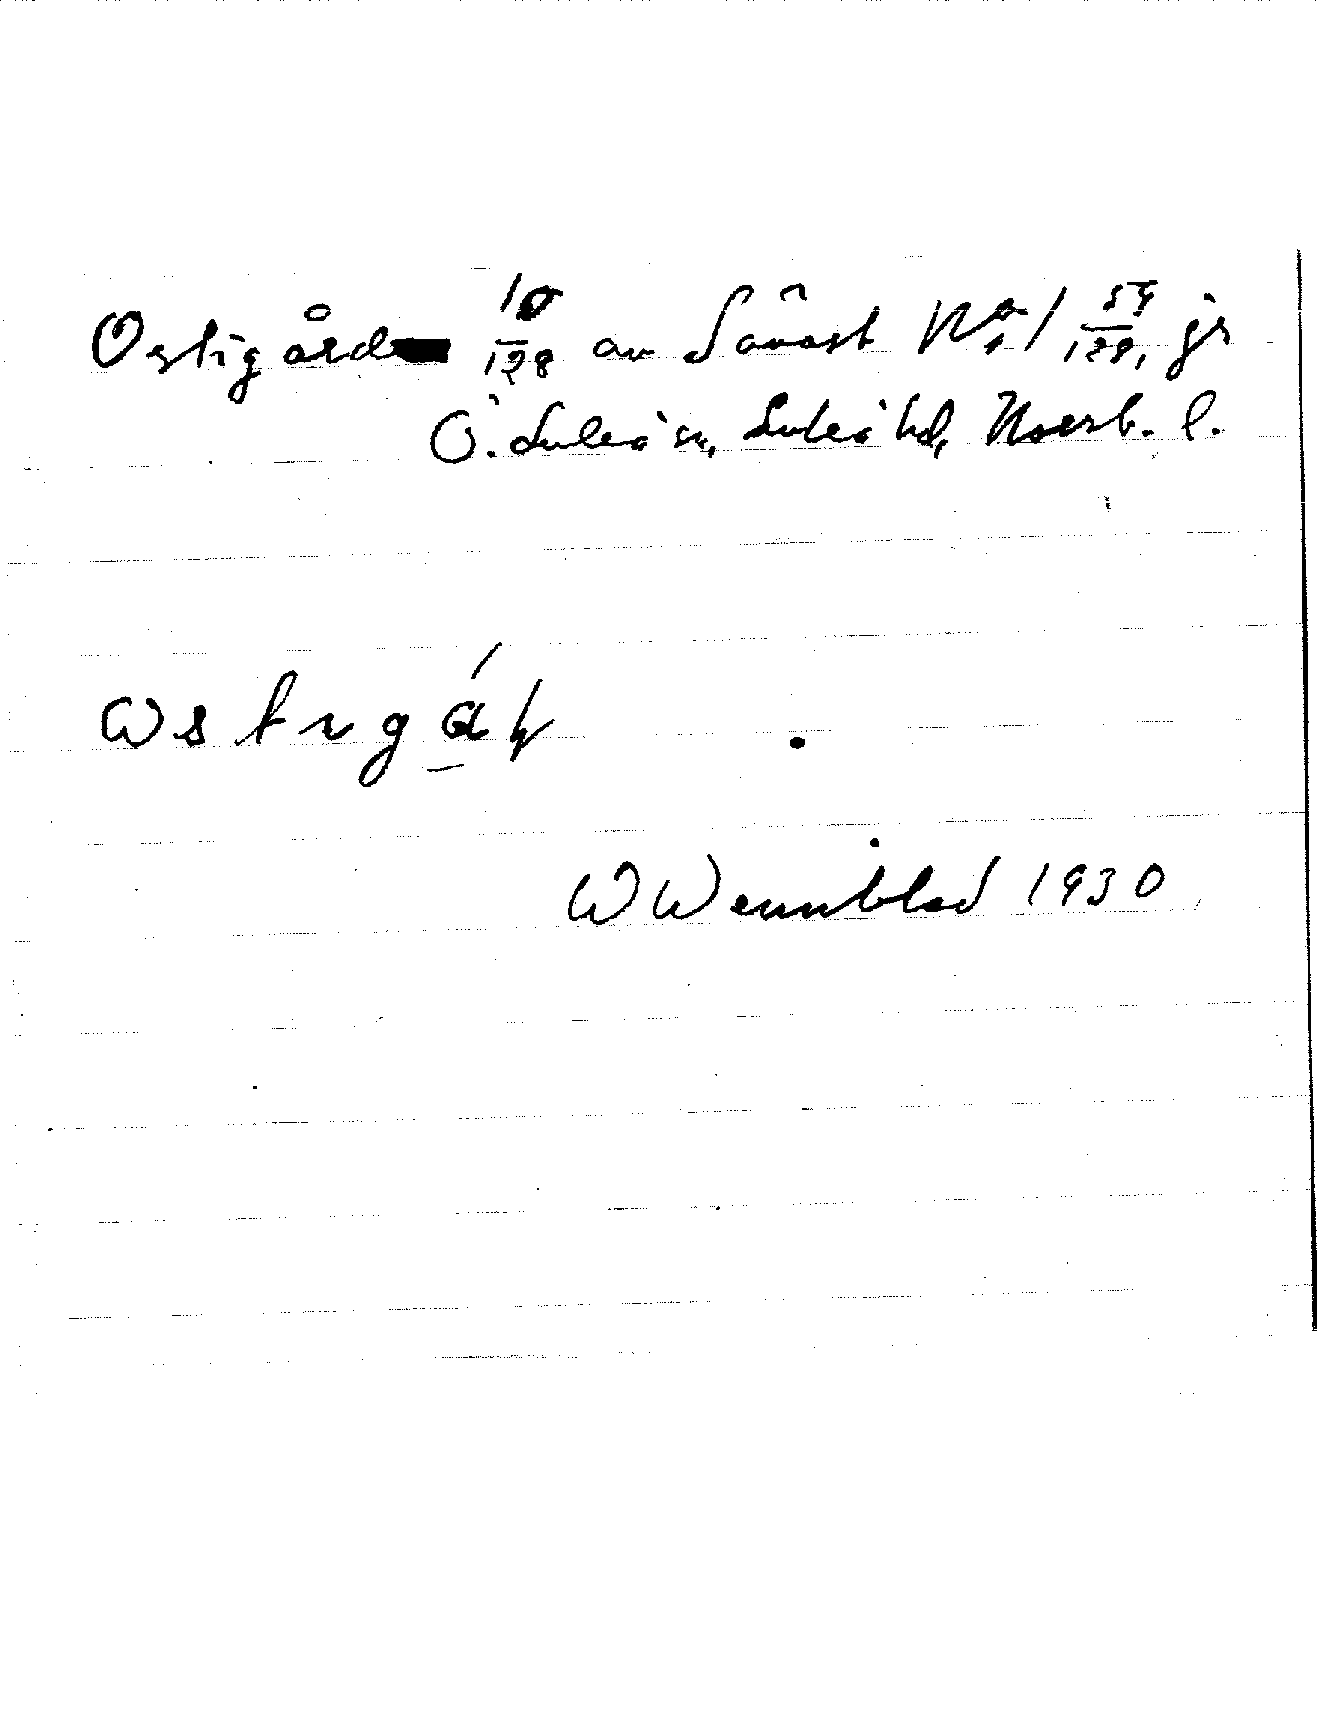 Östigård 10/128 av Sävast No 1 59/128, jr
Ö. Luleå sn, Luleå hd, Norrb. l.
W Wennblad 1930